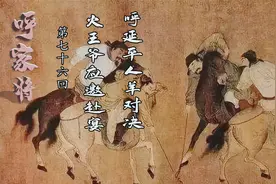 呼家将
第七十六回
呼延平人羊对决
火王爷应邀赴宴